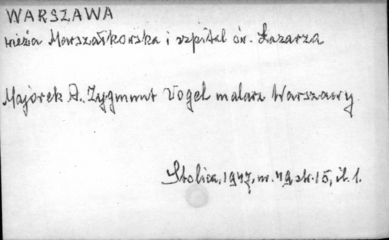 WARSZAWA
wieża Marszałkowska i szpital św. Łazarza
Majorek A. Zygmunt Vogel malarz Warszawy
Stolica, 1947, nr. 49 str. 15, il. 1.